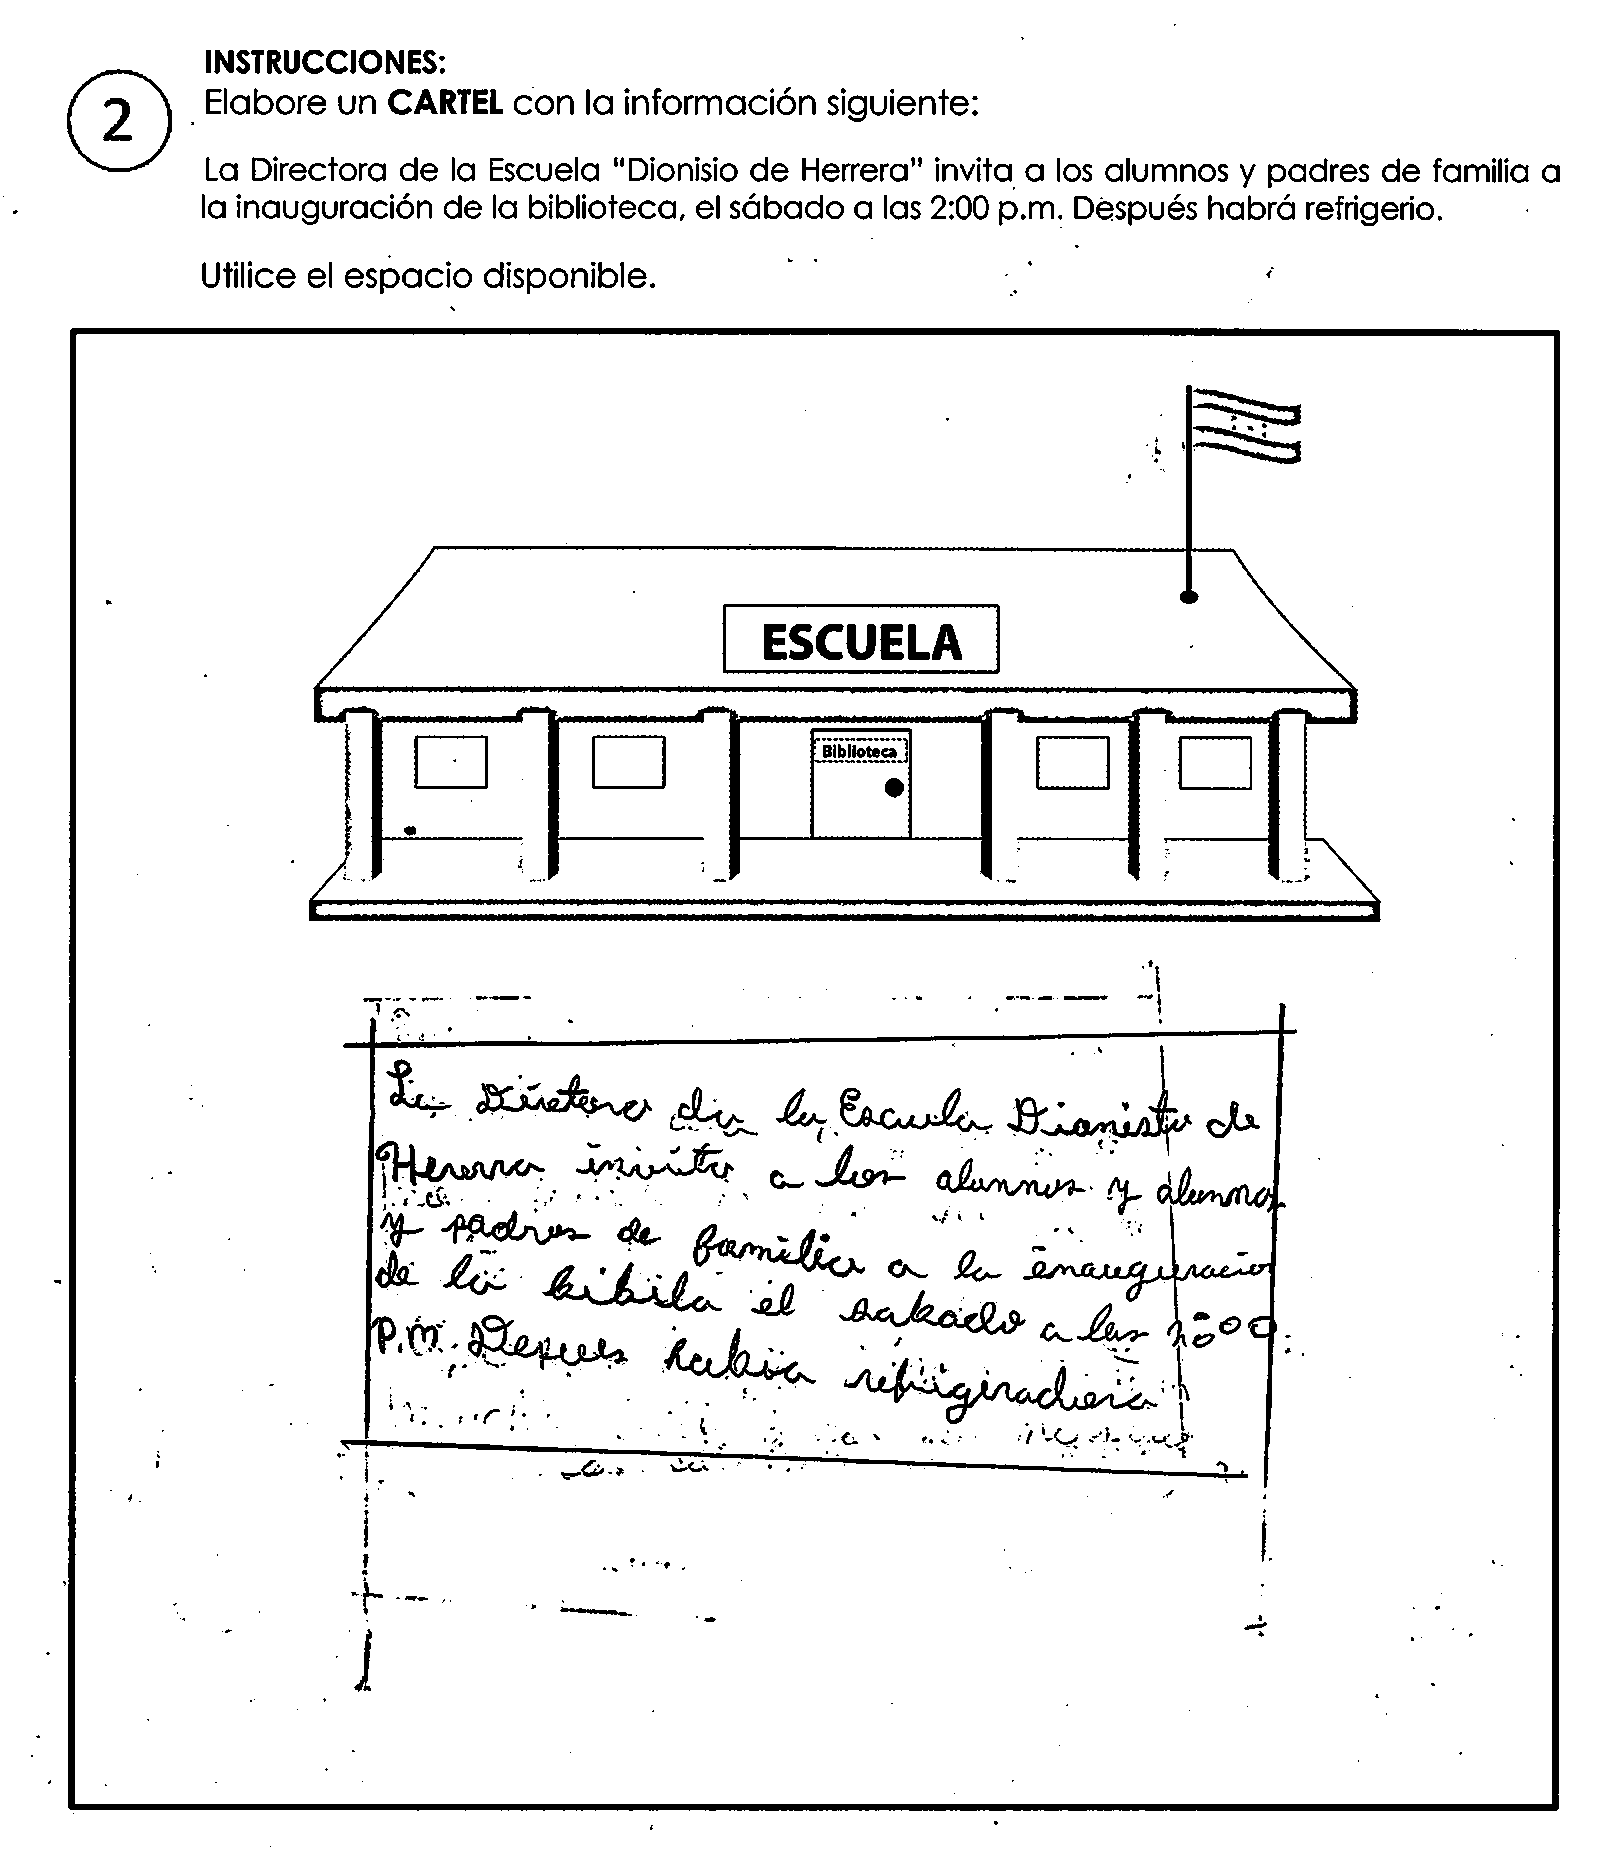 INSTRUCCIONES:
2
Elabore un CARTEL con la información siguiente:
La Directora de la Escuela "Dionisio de Herrera" invita a los alumnos y padres de familia a
la inauguración de la biblioteca, el sábado a las 2:00 p.m. Después habrá refrigerio.
Utilice el espacio disponible.
ESCUELA
Biblioteca
La Diretora de la Escuela Dionisio de
Herera invita a los alunnos y alunnos
y padres de familia a la inauguracion
de la bibila el sabado a las 2:00
P.M. Depues habia refrigeradora